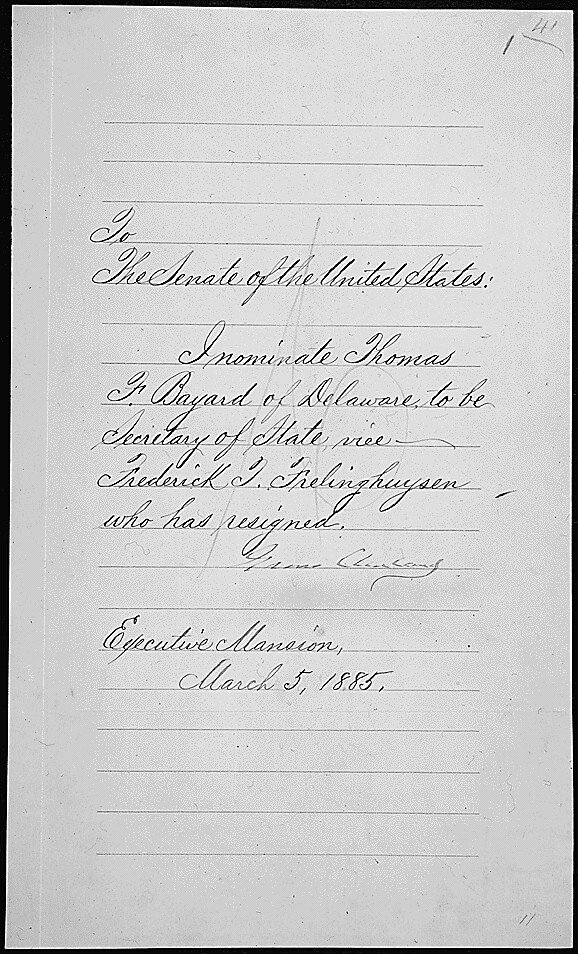 41
To
The Senate of the United States:
I nominate Thomas
F. Bayard of Delaware, to be
Secretary of State, vice
Frederick T. Frelinghuysen
who has resigned.
Grover Cleveland
Executive Mansion,
March 5, 1885.
11